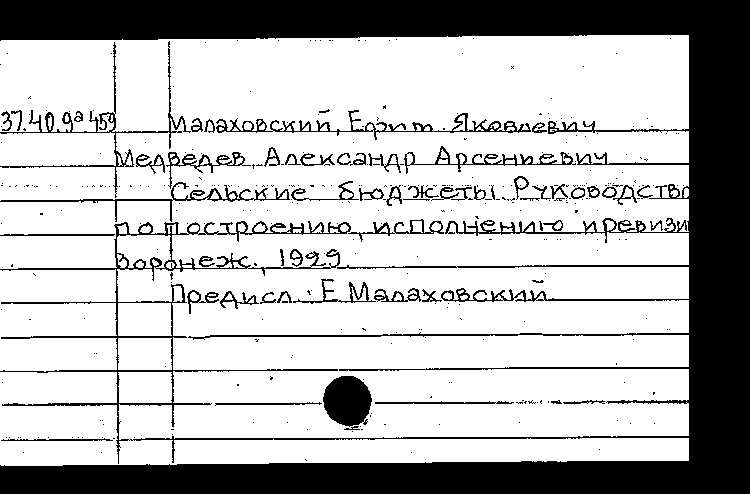 37.40.9а459 Малаховский, Ефим Яковлевич
Медведев, Александр Арсениевич
Сельские бюджеты. Руководство
по построению, исполнению и ревизи
Воронеж., 1929.
Предисл.: Е Малаховский.